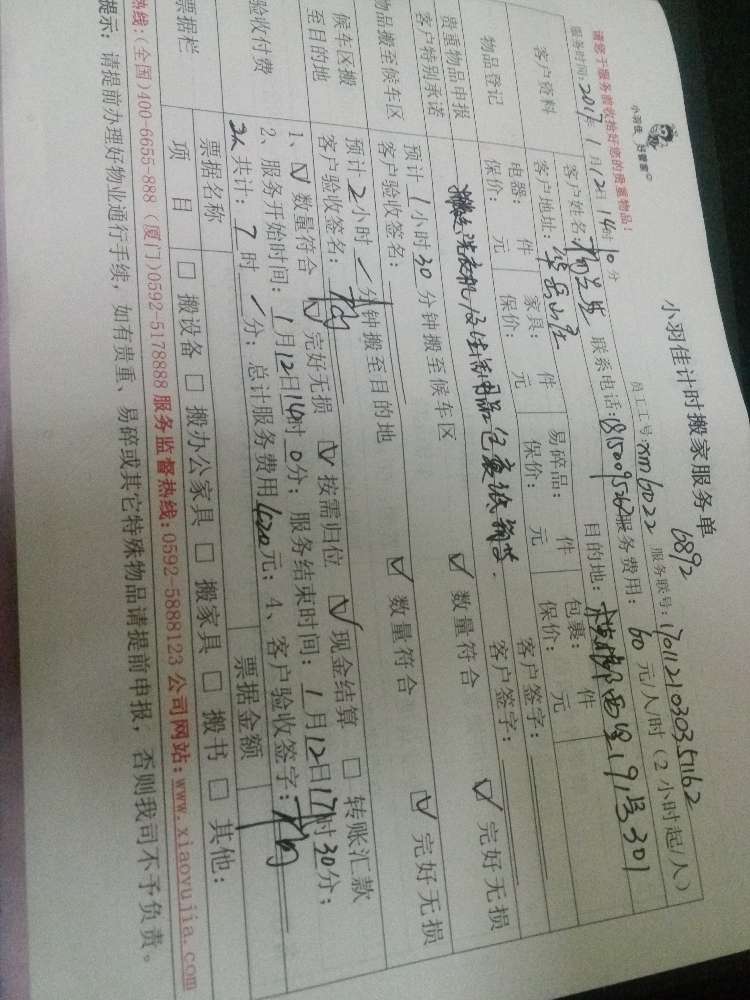 小羽佳 好管家
小羽佳计时搬家服务单
6892
请您于服务前收拾好您的贵重物品！
员工工号: xm6022 服务联号: 1701121030351162
服务时间: 2017年 1月12日 14时10分
客户资料
客户姓名: 联系电话: 服务费用: 60 元/人/时（2小时起/人）
客户地址: 目的地: 19号301
物品登记
电器: 件 家具: 件 易碎品: 件 包裹: 件
保价: 元 保价: 元 保价: 元 保价: 元
客户签字:
贵重物品申报
客户特别承诺
搬运洗衣机
客户签字:
物品搬至候车区
预计 1小时 30 分钟搬至候车区 数量符合 完好无损
客户验收签名:
候车区搬
至目的地
预计 2小时 分钟搬至目的地 数量符合 完好无损
客户验收签名:
验收付费
1、 数量符合 完好无损 按需归位 现金结算 转账汇款
2、服务开始时间: 1月12日14时 0分; 服务结束时间: 1月12日17时30分;
2人共计: 7 时 分; 总计服务费用 420 元; 4、客户验收签字:
票据栏
票据名称 票据金额
项 目 搬设备 搬办公家具 搬家具 搬书 其他:
热线:(全国)400-6655-888 (厦门)0592-5178888 服务监督热线:0592-5888123 公司网站:www.xiaoyujia.com
提示: 请提前办理好物业通行手续，如有贵重、易碎或其它特殊物品请提前申报，否则我司不予负责。